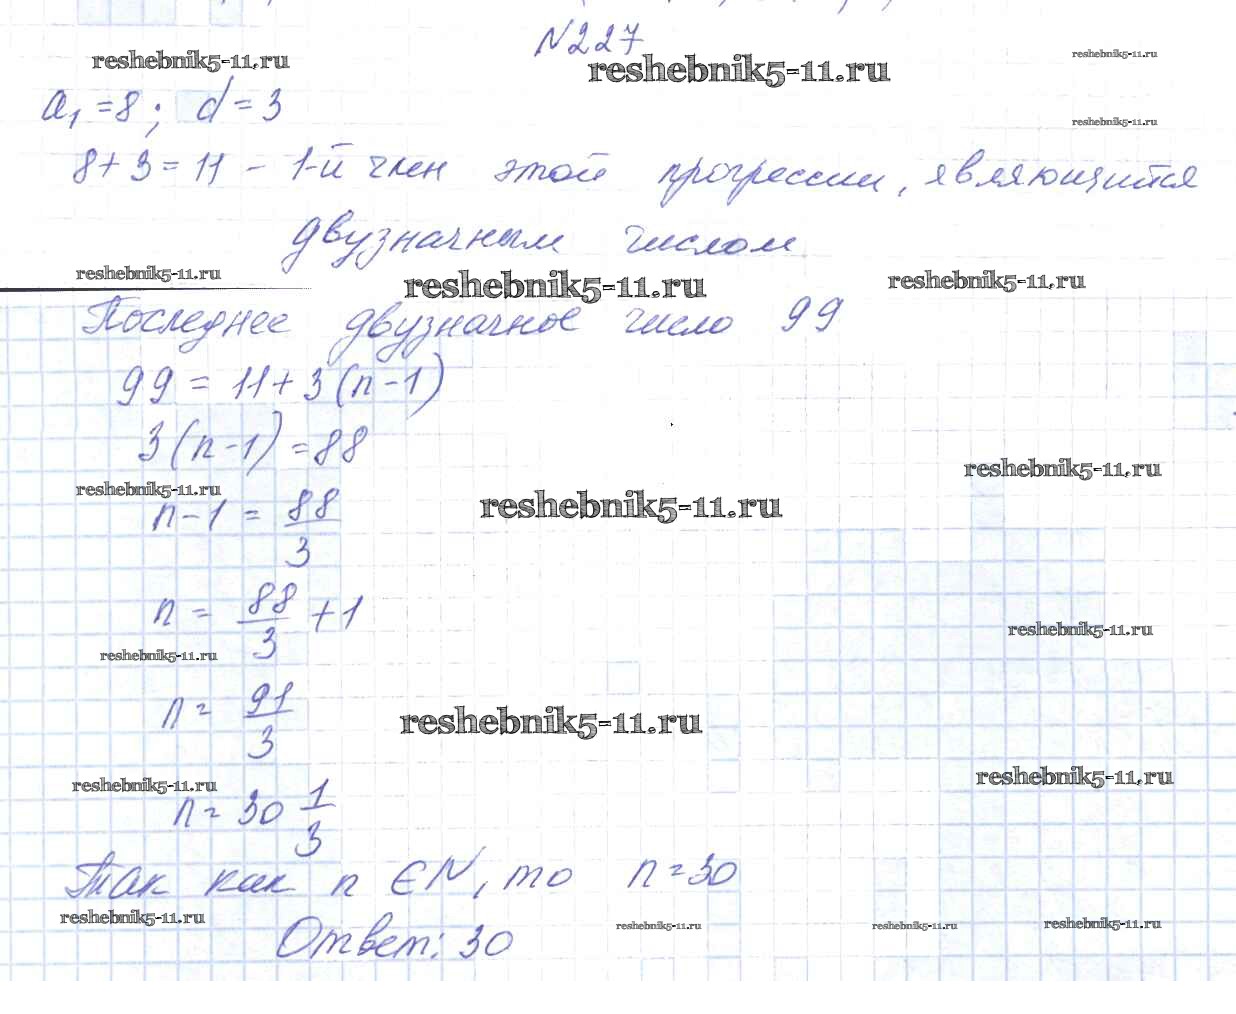 N227
reshebnik5-11.ru
reshebnik5-11.ru
reshebnik5-11.ru
a₁ = 8; d = 3
reshebnik5-11.ru
8 + 3 = 11 – 1-й член этой прогрессии, являющийся
двузначным числом
reshebnik5-11.ru
reshebnik5-11.ru
reshebnik5-11.ru
Последнее двузначное число 99
99 = 11 + 3(n - 1)
3(n - 1) = 88
reshebnik5-11.ru
reshebnik5-11.ru
reshebnik5-11.ru
n - 1 = 88/3
n = 88/3 + 1
reshebnik5-11.ru
reshebnik5-11.ru
n = 91/3
reshebnik5-11.ru
reshebnik5-11.ru
reshebnik5-11.ru
n = 30 1/3
Так как n ∈ N, то n = 30
reshebnik5-11.ru
reshebnik5-11.ru
reshebnik5-11.ru
reshebnik5-11.ru
Ответ: 30